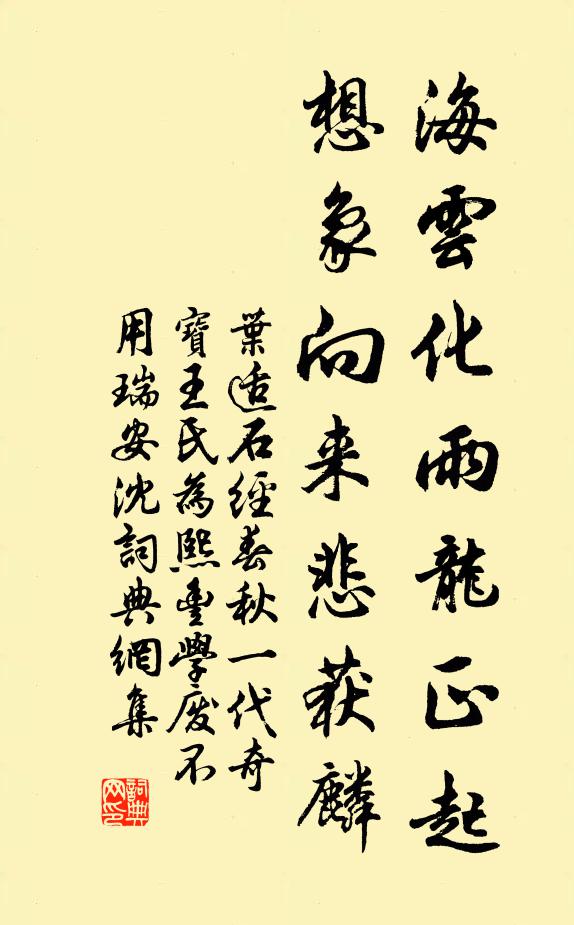 海雲化雨龍正起
想象向来悲获麟
葉适石經春秋一代奇
寶王氏為熙豊學废不
用瑞安沈詞典網集
詞典
网印